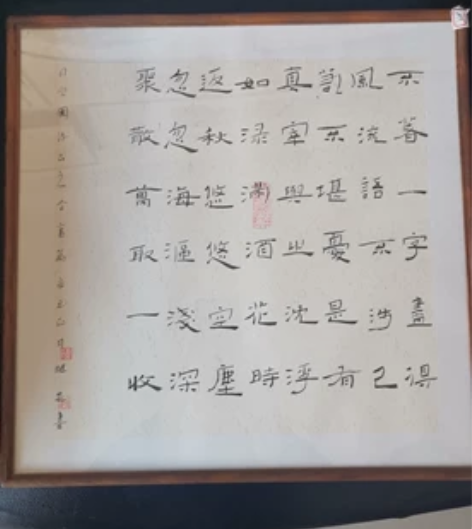 不著一字盡得
風流語不涉已
難不堪憂是有
真宰與之沈浮
如渌滿酒花時
返秋悠悠空塵
忽忽海漚淺深
聚散萬取一收
司空圖詩品之含蓄篇 書